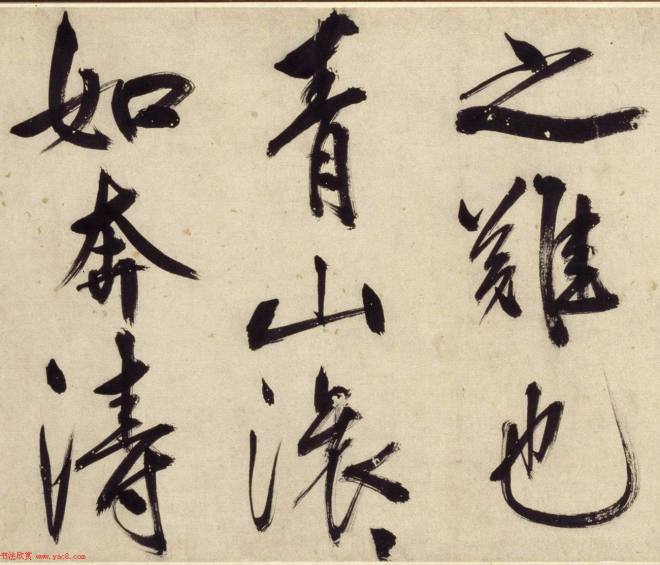 之難也
青山滚〻
如奔濤
书法欣赏 www.yac8.com